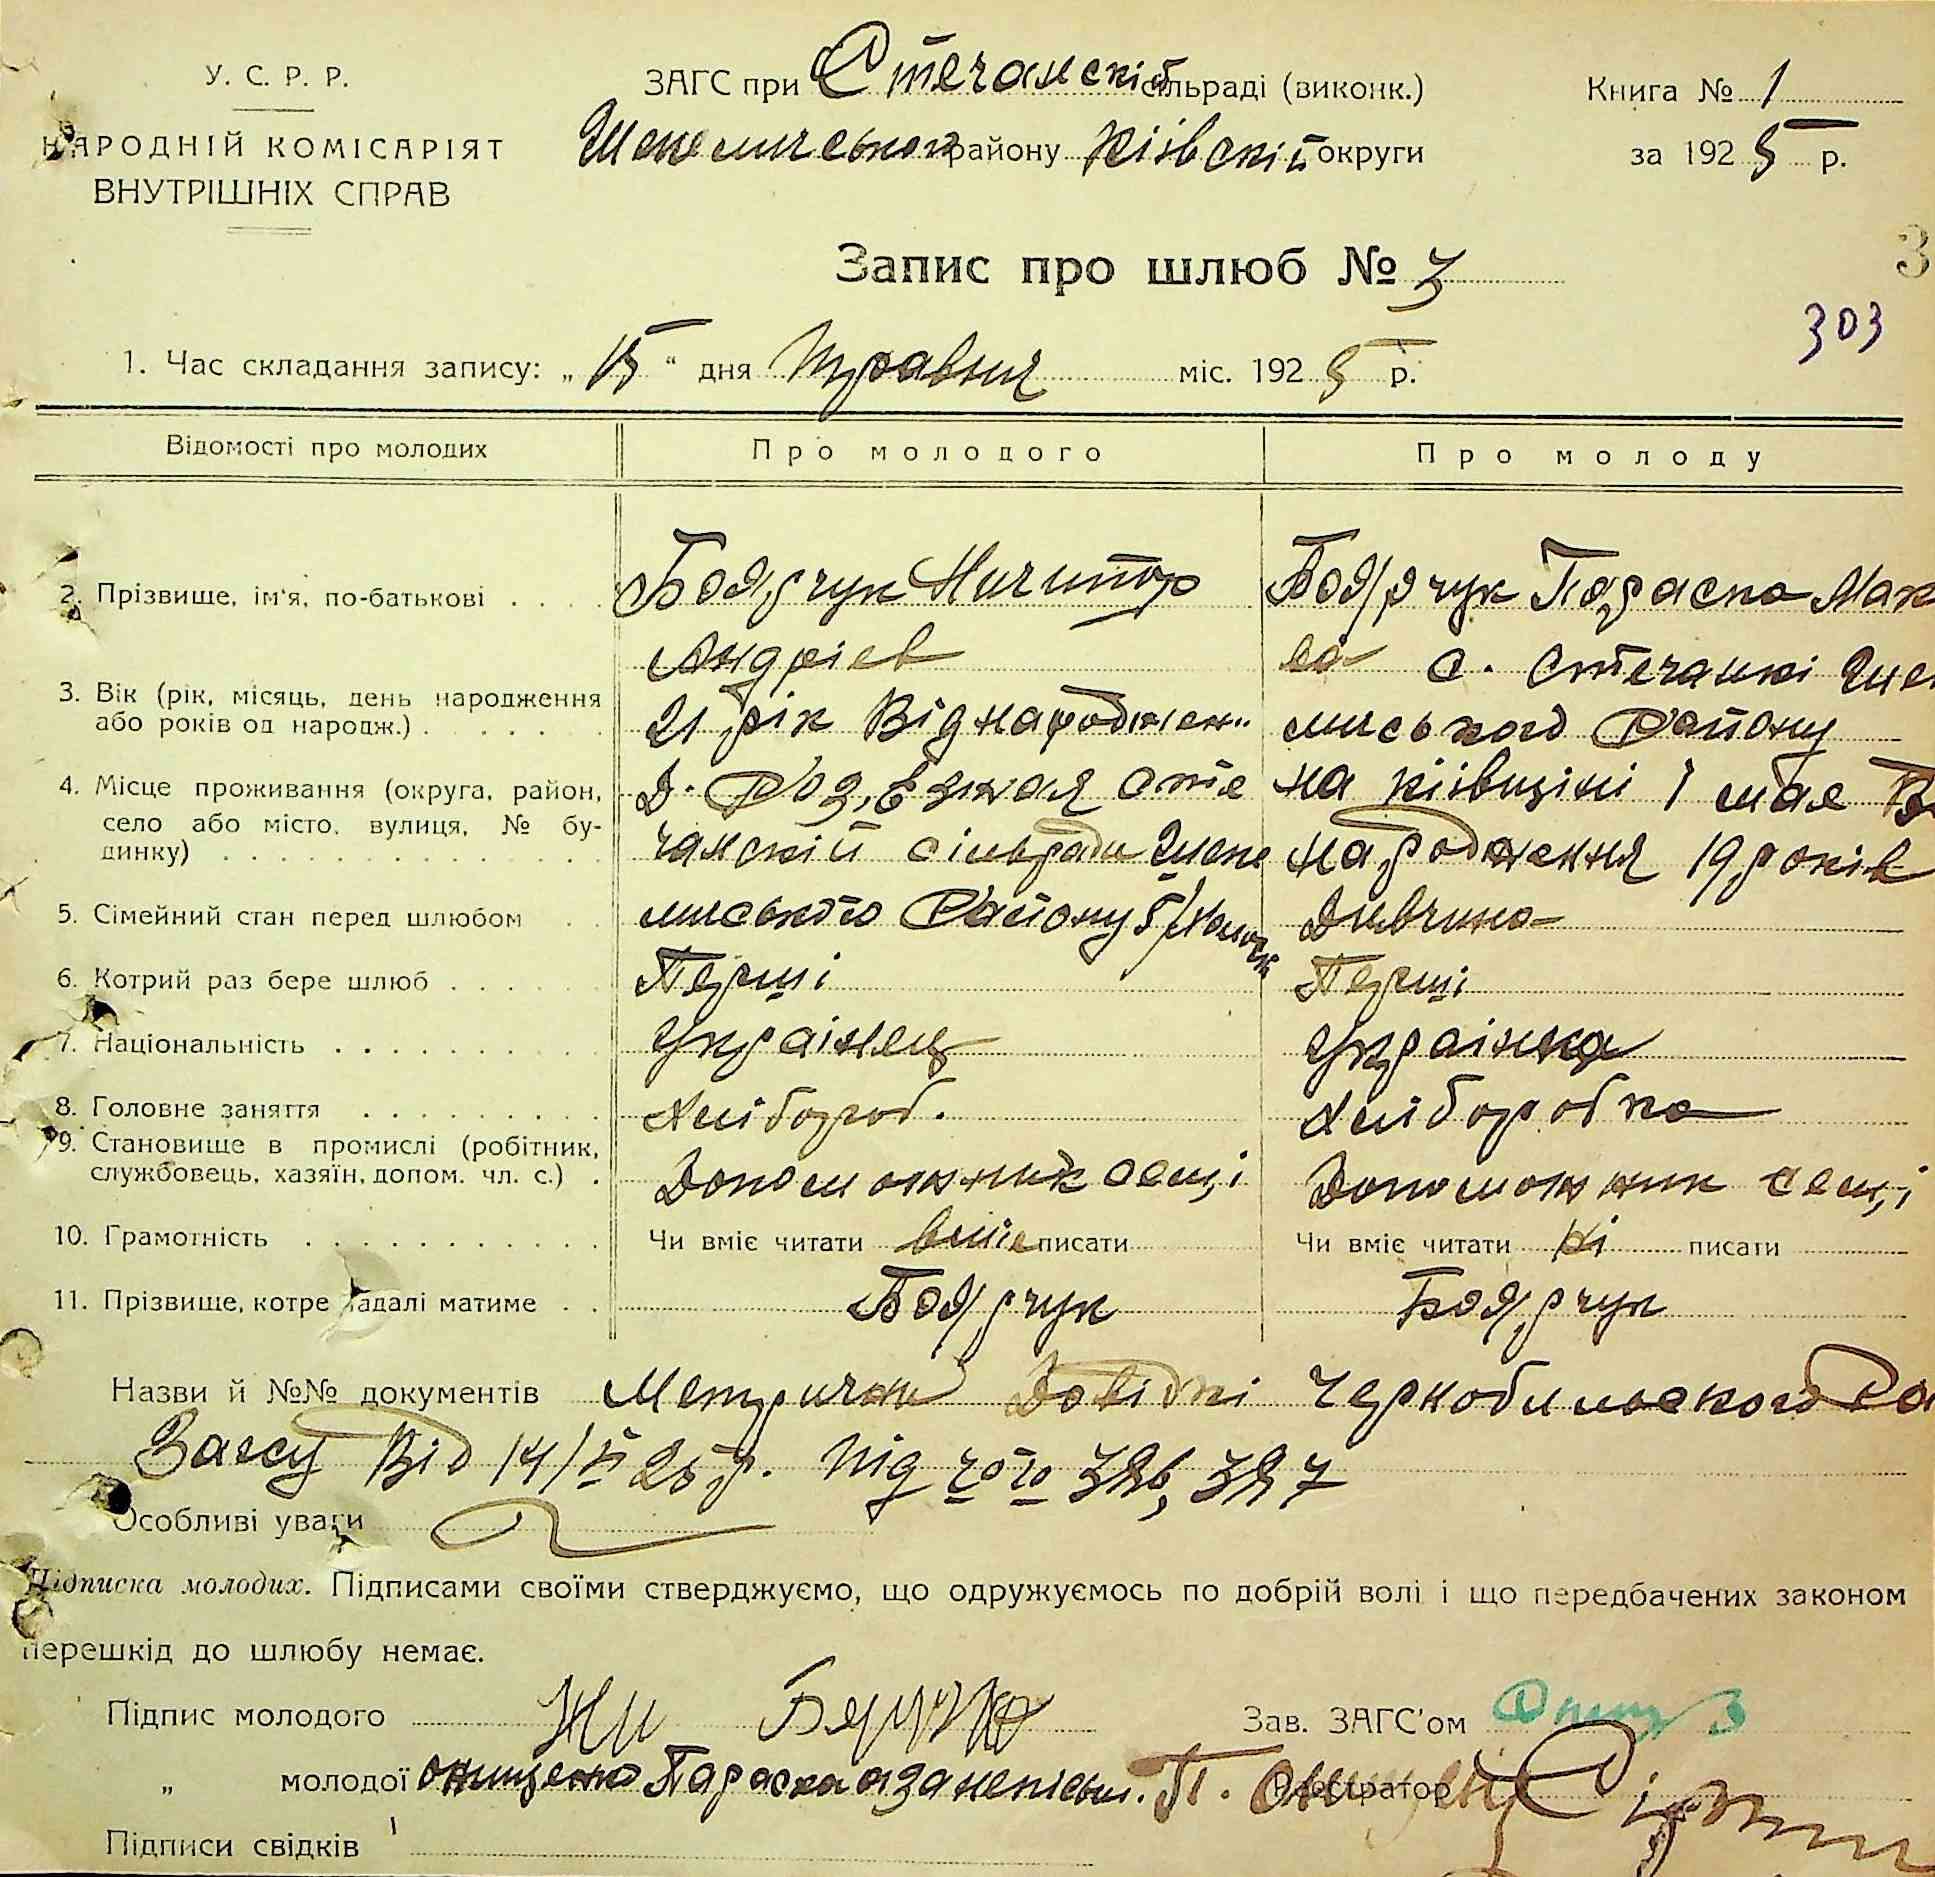 У. С. Р. Р.
НАРОДНІЙ КОМІСАРІЯТ
ВНУТРІШНІХ СПРАВ
ЗАГС при Стечанскій сільраді (виконк.)
Шепелицського району Київскій округи
Книга № 1
за 1925 р.
Запис про шлюб № 3
3
303
1. Час складання запису: „15“ дня Травня міс. 1925 р.
Відомості про молодих
Про молодого
Про молоду
2. Прізвище, ім'я, по-батькові
Боярчук Ничипор
Андріев
Боярчук Параска Мак
3. Вік (рік, місяць, день народження
або років од народж.)
21 рік Від народжен
с. Стечанкі Шеп
4. Місце проживання (округа, район,
село або місто, вулиця, № бу-
динку)
Д. Розʼезжая Сте
чанскій сільради Шепе
лиського Району
лиського Району
на Київщині і мае Ві
народження 19 років
5. Сімейний стан перед шлюбом
Дивчина
6. Котрий раз бере шлюб
Перші
Перші
7. Національність
Українец
Українка
8. Головне заняття
Хлібороб.
Хліборобка
9. Становище в промислі (робітник,
службовець, хазяїн, допом. чл. с.)
Допоможник семʼі
Допоможник семʼі
10. Грамотність
Чи вміє читати вміе писати
Чи вміє читати Ні писати
11. Прізвище, котре надалі матиме
Боярчук
Боярчук
Назви й №№ документів Метрични Довідкі Чернобильского Ра
Загсу Від 14/IV 25 р. під 326, 327
Особливі уваги
Підписка молодих. Підписами своїми стверджуємо, що одружуємось по добрій волі і що передбачених законом
перешкід до шлюбу немає.
Підпис молодого
Зав. ЗАГС'ом
„ молодої Онищенко Параска а за неписьм. П. Онищ
Реєстратор
Підписи свідків